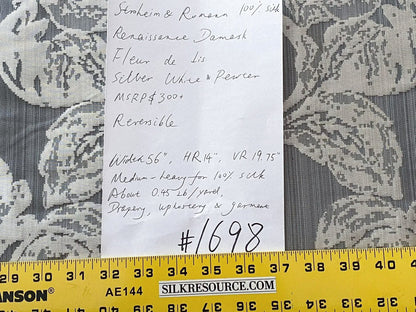 Scroheim & Romann 100% silk
Renaissance Damask
Fleur de Lis
Silver White & Pewter
MSRP $300+
Reversible
Width 56", HR 14", VR 19.75"
Medium-heavy for 100% silk
About 0.45 lb/yard.
Drapery, upholstery & garment
#1698
29 30 31 32 33 34 35 36 37 38 39 40 41 42
ANSON® AE144 SILKRESOURCE.COM